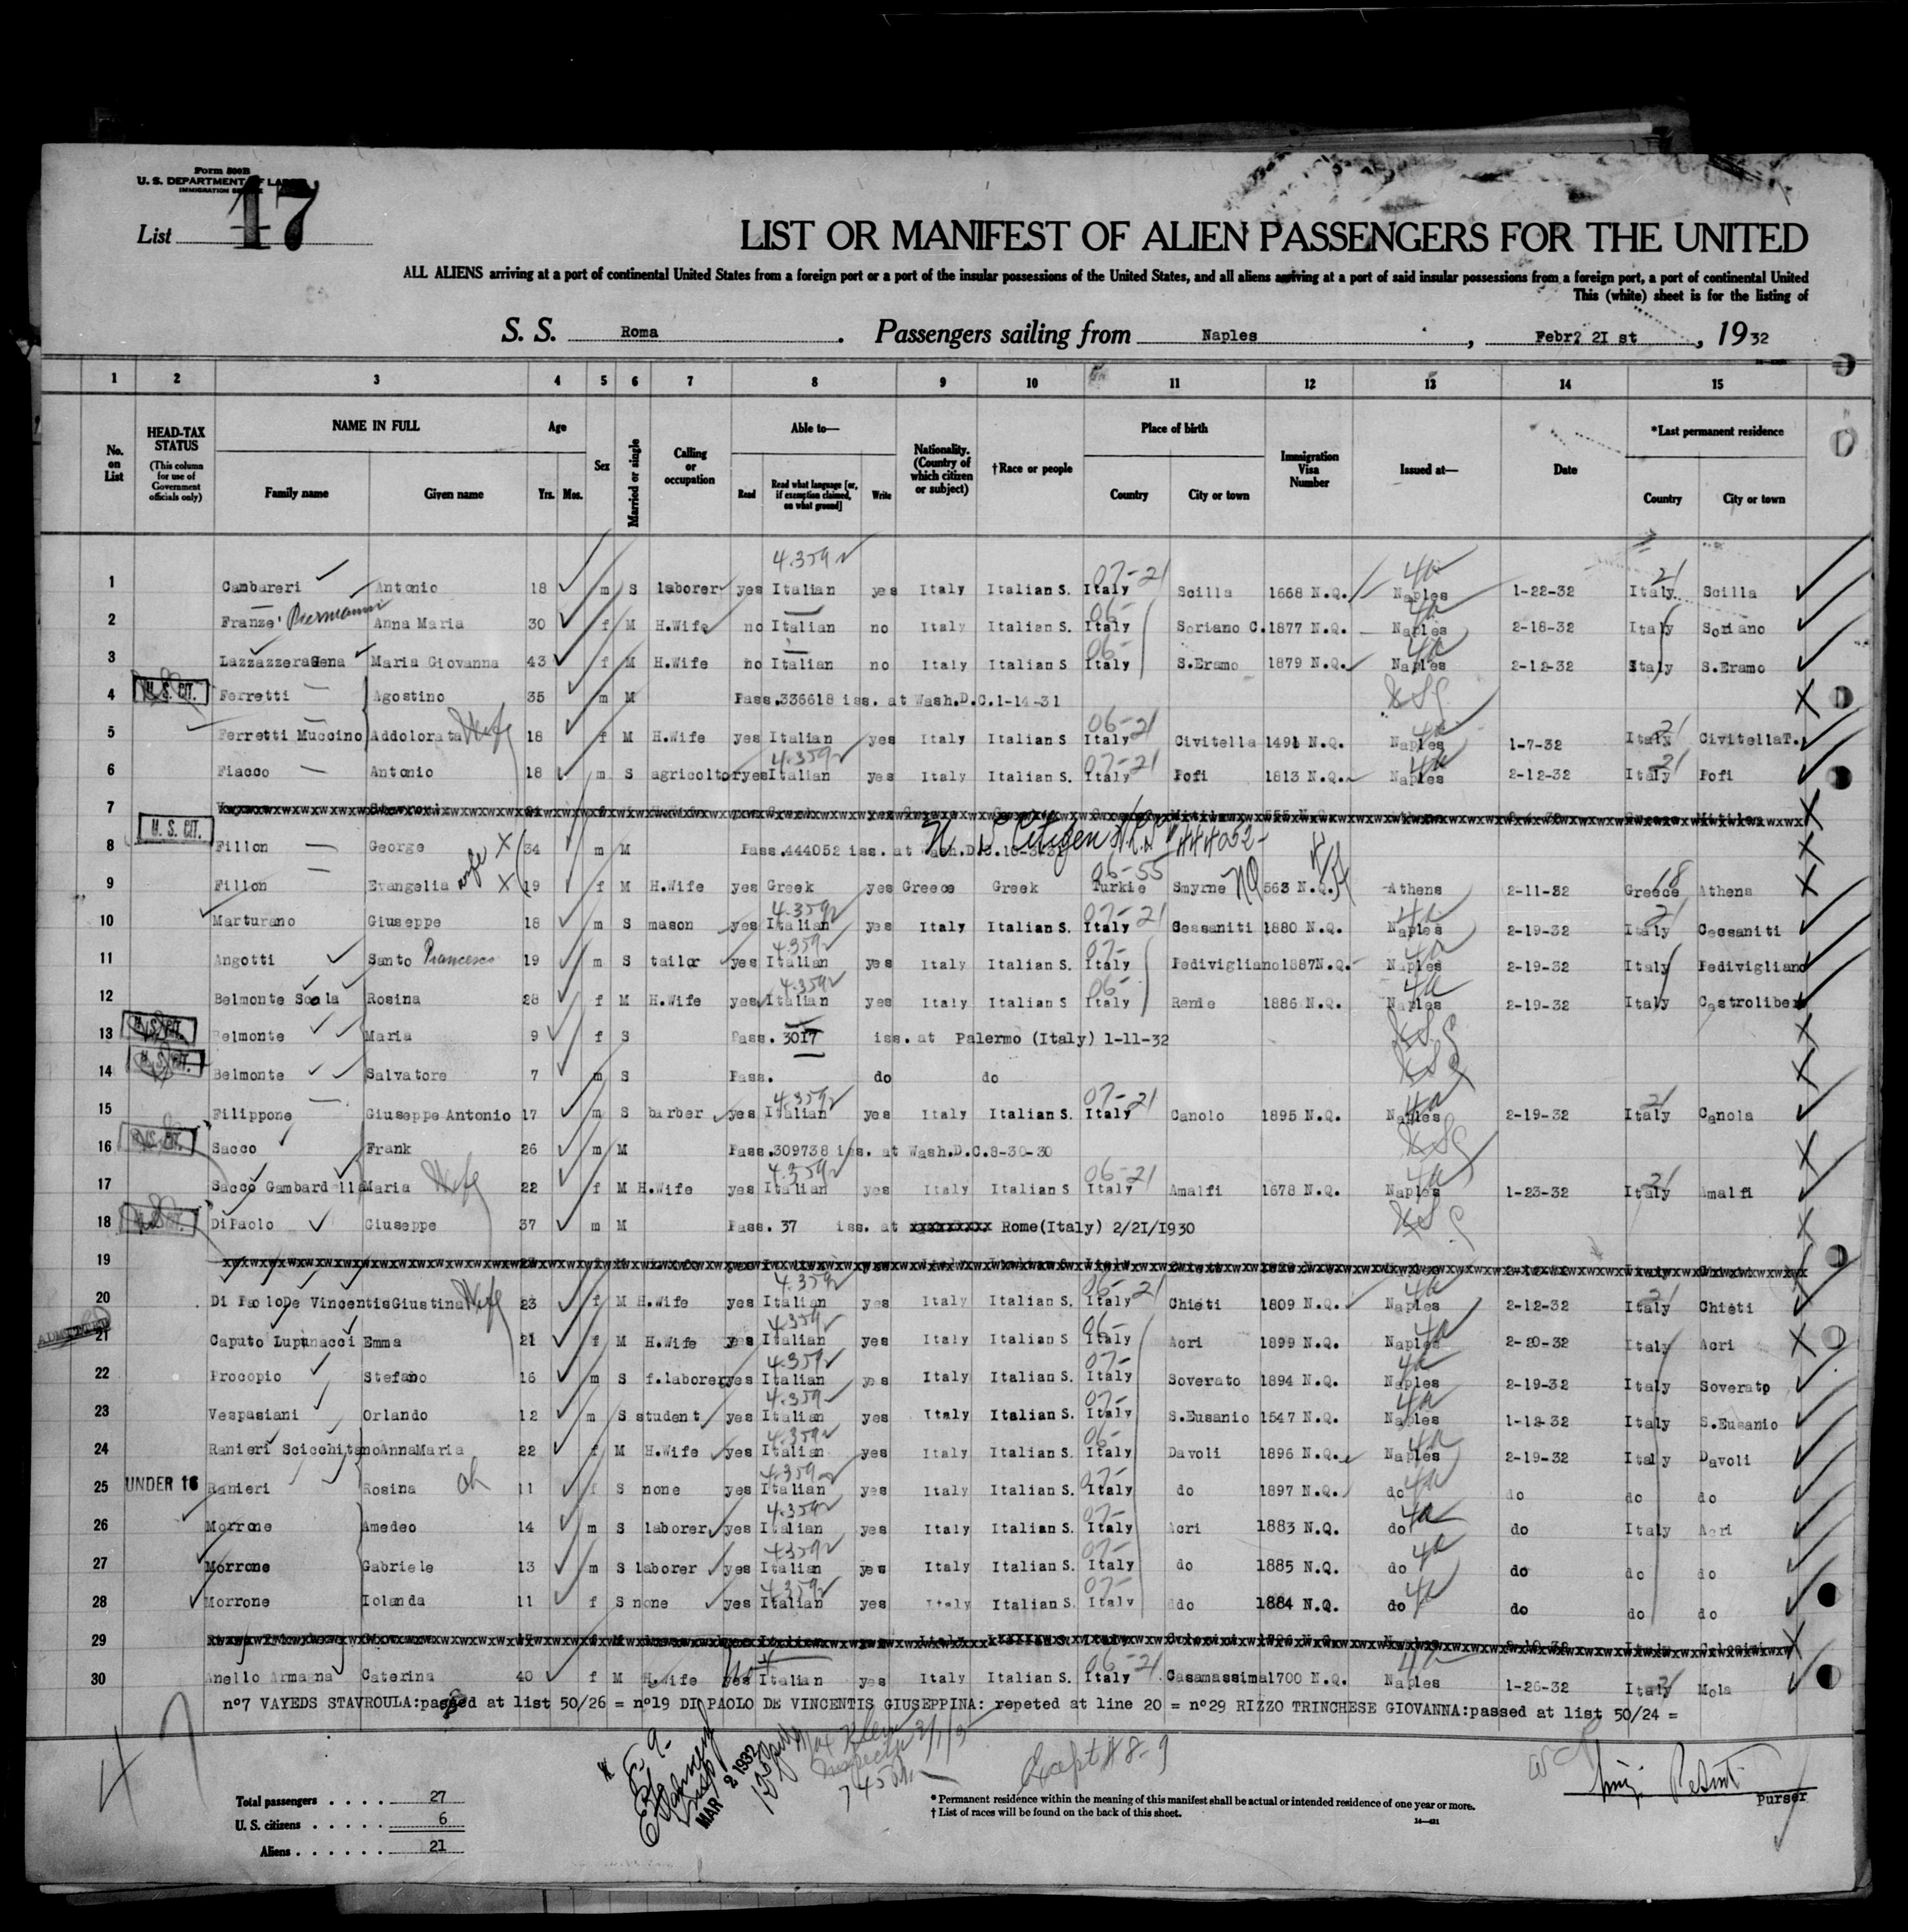 Form 500B
U. S. DEPARTMENT OF LABOR
IMMIGRATION SERVICE
List 47
LIST OR MANIFEST OF ALIEN PASSENGERS FOR THE UNITED
ALL ALIENS arriving at a port of continental United States from a foreign port or a port of the insular possessions of the United States, and all aliens arriving at a port of said insular possessions from a foreign port, a port of continental United
This (white) sheet is for the listing of
S. S. Roma. Passengers sailing from Naples, Febr? 21 st, 1932
1 2 3 4 5 6 7 8 9 10 11 12 13 14 15
No. on List
HEAD-TAX STATUS (This column for use of Government officials only)
NAME IN FULL Family name Given name
Age Yrs. Mos.
Sex
Married or single
Calling or occupation
Able to— Read Read what language [or, if exemption claimed, on what ground] Write
Nationality. (Country of which citizen or subject)
†Race or people
Place of birth Country City or town
Immigration Visa Number
Issued at—
Date
*Last permanent residence Country City or town
1 Cambareri Antonio 18 m S laborer yes Italian 4.359 yes Italy Italian S. Italy 07-21 Scilla 1668 N.Q. Naples 1-22-32 Italy 21 Scilla
2 Franze' Anna Maria 30 f M H.Wife no Italian no Italy Italian S. Italy 06- Soriano C. 1877 N.Q. Naples 2-18-32 Italy Soriano
3 Lazzazzera Maria Giovanna 43 f M H.Wife no Italian no Italy Italian S. Italy 06- S.Eramo 1879 N.Q. Naples 2-12-32 Italy S.Eramo
4 U.S. CIT. Ferretti Agostino 35 m M Pass.336618 iss. at Wash.D.C.1-14-31
5 Ferretti Muccino Addolorata Wife 18 f M H.Wife yes Italian yes Italy Italian S Italy 06-21 Civitella 1491 N.Q. Naples 1-7-32 Italy 21 CivitellaT.
6 Fiacco Antonio 18 m S agricoltor yes Italian 4.359 yes Italy Italian S. Italy 07-21 Pofi 1813 N.Q. Naples 2-12-32 Italy 21 Pofi
7
8 U.S. CIT. Fillon George 34 m M Pass.444052 iss. at Wash.D.C. Citizen 444052-
9 Fillon Evangelia wife 19 f M H.Wife yes Greek yes Greece Greek Turkie 06-55 Smyrne 563 N.Q. Athens 2-11-32 Greece 18 Athens
10 Marturano Giuseppe 18 m S mason yes Italian 4.359 yes Italy Italian S. Italy 07-21 Cessaniti 1880 N.Q. Naples 2-19-32 Italy 21 Cessaniti
11 Angotti Santo Francesco 19 m S tailor yes Italian 4.359 yes Italy Italian S. Italy 07- Pedivigliano 1887N.Q. Naples 2-19-32 Italy Pedivigliano
12 Belmonte Scola Rosina 28 f M H.Wife yes Italian 4.359 yes Italy Italian S Italy 06- Rende 1886 N.Q. Naples 2-19-32 Italy Castroliber
13 U.S. CIT. Belmonte Maria 9 f S Pass. 3017 iss. at Palermo (Italy) 1-11-32
14 U.S. CIT. Belmonte Salvatore 7 m S Pass. do do
15 Filippone Giuseppe Antonio 17 m S barber yes Italian 4.359 yes Italy Italian S. Italy 07-21 Canolo 1895 N.Q. Naples 2-19-32 Italy 21 Canola
16 U.S. CIT. Sacco Frank 26 m M Pass.309738 iss. at Wash.D.C.8-30-30
17 Sacco Gambardella Maria Wife 22 f M H.Wife yes Italian 4.359 yes Italy Italian S Italy 06-21 Amalfi 1678 N.Q. Naples 1-23-32 Italy 21 Amalfi
18 DiPaolo Giuseppe 37 m M Pass. 37 iss. at Rome(Italy) 2/21/1930
19
20 Di Paolo De Vincentis Giustina Wife 23 f M H.Wife yes Italian 4.359 yes Italy Italian S. Italy 06-21 Chieti 1809 N.Q. Naples 2-12-32 Italy 21 Chieti
ADMITTED
21 Caputo Lupinacci Emma 21 f M H.Wife yes Italian 4.359 yes Italy Italian S Italy 06- Acri 1899 N.Q. Naples 2-20-32 Italy Acri
22 Procopio Stefano 16 m S f.laborer yes Italian 4.359 yes Italy Italian S. Italy 07- Soverato 1894 N.Q. Naples 2-19-32 Italy Soverato
23 Vespasiani Orlando 12 m S student yes Italian 4.359 yes Italy Italian S. Italy 07- S.Eusanio 1547 N.Q. Naples 1-12-32 Italy S.Eusanio
24 Ranieri Scicchitano AnnaMaria 22 f M H.Wife yes Italian 4.359 yes Italy Italian S. Italy 06- Davoli 1896 N.Q. Naples 2-19-32 Italy Davoli
25 UNDER 16 Ranieri Rosina ch 11 f S none yes Italian 4.359 yes Italy Italian S. Italy 07- do 1897 N.Q. do do do do
26 Morrone Amedeo 14 m S laborer yes Italian 4.359 yes Italy Italian S. Italy 07- Acri 1883 N.Q. do do Italy Acri
27 Morrone Gabriele 13 m S laborer yes Italian 4.359 yes Italy Italian S. Italy 07- do 1885 N.Q. do do do do
28 Morrone Iolanda 11 f S none yes Italian 4.359 yes Italy Italian S. Italy 07- do 1884 N.Q. do do do do
29
30 Anello Armagna Caterina 40 f M H.Wife yes Italian yes Italy Italian S. Italy 06-21 Casamassima 1700 N.Q. Naples 1-26-32 Italy 21 Mola
nº7 VAYEDS STAVROULA:passed at list 50/26 = nº19 DI PAOLO DE VINCENTIS GIUSEPPINA: repeted at line 20 = nº29 RIZZO TRINCHESE GIOVANNA:passed at list 50/24 =
47
MAR 2 1932
Max Klein
Inspector 3/1/3
Except # 8-9
Total passengers . . . . 27
U. S. citizens . . . . . 6
Aliens . . . . . . 21
* Permanent residence within the meaning of this manifest shall be actual or intended residence of one year or more.
† List of races will be found on the back of this sheet.
Purser